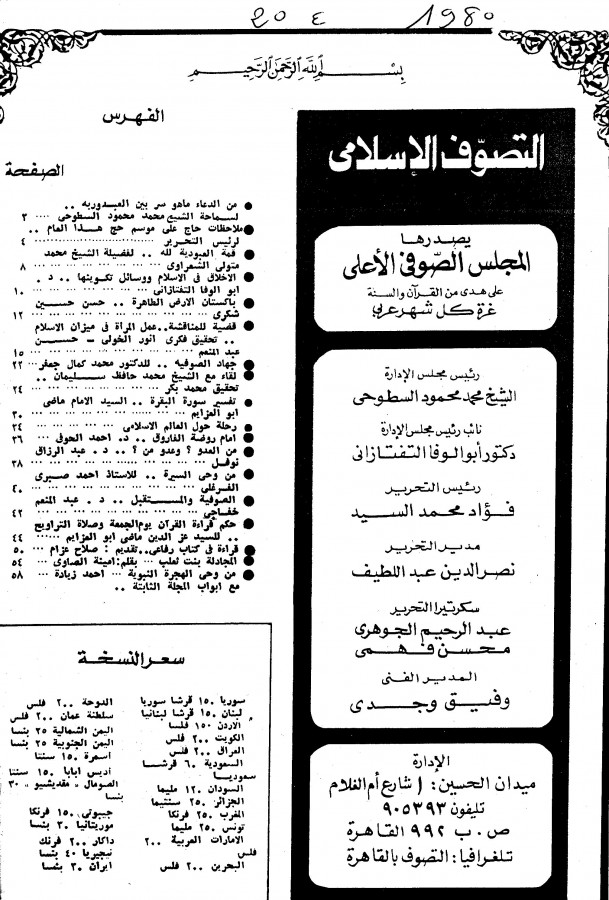 20 ٤ 1980
بسم الله الرحمن الرحيم
التصوّف الإسلامى
يصدرها
المجلس الصّوفى الأعلى
على هدى من القرآن والسنة
غرة كل شهر عربي
رئيس مجلس الإدارة
الشيخ محمد محمود السطوحى
نائب رئيس مجلس الإدارة
دكتور أبو الوفا التفتازانى
رئيس التحرير
فؤاد محمد السيد
مدير التحرير
نصر الدين عبد اللطيف
سكرتيرا التحرير
عبد الرحيم الجوهرى
محسن فهمى
المدير الفنى
وفيق وجدى
الإدارة
ميدان الحسين: ١ شارع أم الغلام
تليفون ٩٠٥٣٩٣
ص . ب ٩٩٢ القاهرة
تلغرافيا : التصوف بالقاهرة
الفهرس
الصفحة
● من الدعاء ماهو سر بين العبد وربه ..
لسماحة الشيخ محمد محمود السطوحى .... ٢
● ملاحظات حاج على موسم حج هذا العام ..
لرئيس التحرير ... ٤
● قمة العبودية لله .. لفضيلة الشيخ محمد
متولى الشعراوى ... ٨
● الاخلاق فى الاسلام ووسائل تكوينها .. د .
ابو الوفا التفتازانى ... ١٠
● باكستان الارض الطاهرة .. حسن حسين
شكرى ... ١٢
● قضية للمناقشة..عمل المرأة فى ميزان الاسلام
.. تحقيق فكرى انور الخولى - حسن
عبد المنعم ... ١٥
● جهاد الصوفيه .. للدكتور محمد كمال جعفر ... ٢٢
● لقاء مع الشيخ محمد حافظ سليمان ..
تحقيق محمد بكر ... ٢٤
● تفسير سورة البقرة .. السيد الامام ماضى
ابو العزايم ... ٣٠
● رحلة حول العالم الاسلامى ... ٣٤
● امام روضة الفاروق .. د. احمد الحوفى ... ٣٦
● من العدو ؟ وعدو من ؟ .. د . عبد الرزاق
نوفل ... ٣٨
● من وحى السيرة .. للاستاذ احمد صبرى
الفرغلى ... ٤٠
● الصوفية والمستقبل .. د . عبد المنعم
خفاجى ... ٤٢
● حكم قراءة القرآن يوم الجمعة وصلاة التراويح
.. للسيد عز الدين ماضى ابو العزايم ... ٤٨
● قراءة فى كتاب رفاعى..تقديم : صلاح عزام ... ٥٠
● المجادلة بنت ثعلب ... بقلم:امينة الصاوى ... ٥٤
● من وحى الهجرة النبوية ... احمد زيادة ... ٥٨
مع ابواب المجلة الثابتة ..
سعر النسخة
سوريا ١٥٠ قرشا سوريا
لبنان ١٥٠ قرشا لبنانيا
الاردن ١٥٠ فلسا
الكويت ٢٠٠ فلس
العراق ٢٠٠ فلس
السعودية ٦٠ قرشا
سعوديا
السودان ١٢٠ مليما
الجزائر ٢٥٠ سنتيما
المغرب ٢٥٠ فرنكا
تونس ٢٥٠ مليما
الامارات العربية ٢٠٠
فلس
البحرين ٢٠٠ فلس
الدوحة ٢٠٠ فلس
سلطنة عمان ٢٠٠ فلس
اليمن الشمالية ٢٥ بنسا
اليمن الجنوبية ٢٥ بنسا
أسمرة ١٥٠ سنتا
أديس ابابا ١٥٠ سنتا
الصومال « مقديشيو » ٣٠
بنسا
جيبوتى ١٥٠ فرنكا
موريتانيا ٣٠ بنسا
داكار ٢٠٠ فرنك
نيجيريا ٤٠ بنسا
ايران ٣٠ بنسا